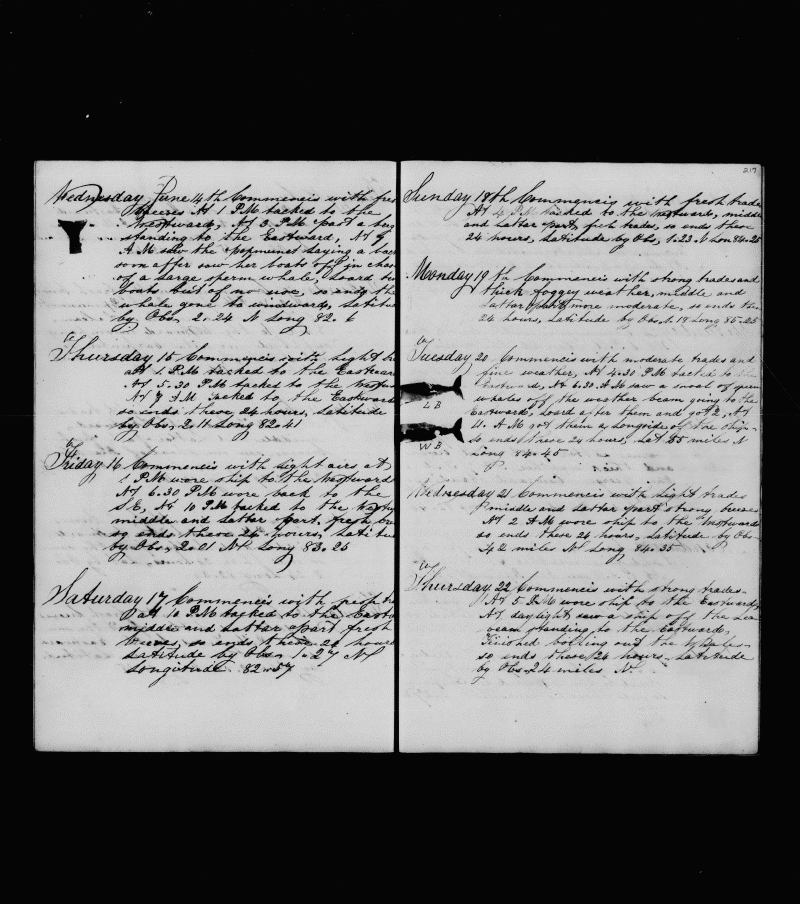 Wednesday June 14th Commencis with
Breezes At 1 PM tacked to the
Westward, At 3 P.M. past a
standing to the Eastward, At 7
A.M saw the laying a
soon after saw her boats off in
of a large sperm whale, Loard
boats but of no use, so ends the
whale gone to windward,
by Obs, 2.24 N Long 82.6
Thursday 15 Commencis with Light
at 1. P.M tacked to the Eastward
At 5.30 P.M tacked to the
At 7 A.M tacked to the Eastward
so ends these 24 hours, Latitude
by Obs, 2.11 Long 82.41
Friday 16 Commencis with light airs at
1 P.M wore ship to the Westward
At 6.30 P.M wore back to the
S.E, At 10 P.M tacked to the
middle and Latter part, fresh
so ends these 24 hours,
by Obs, 2.01 N Long 83.25
Saturday 17 Commencis with fresh
At 10 P.M tacked to the
middle and Latter part fresh
so ends these 24 hours
Latitude by Obs, 1-27 N
Longitude 82-57
217
Sunday 18th Commencis with fresh trades
At 4 P.M tacked to the Westward, middle
and Latter part, fresh trades, so ends these
24 hours, Latitude by Obs, 1.23 N Lon 84.25
Monday 19th Commencis with strong trades and
thick foggey weather, middle and
Latter part more moderate, so ends the
24 hours, Latitude by Obs, 1.19 Long 85-25
Tuesday 20 Commencis with moderate trades and
fine weather, At 4.30 P.M tacked to the
Eastward, At 6.30 A.M saw a shoal of
whales off the weather beam going to the
Eastward, Loard after them and got 2, At
11. A.M got them a Longside of the Ship-
so ends these 24 hours, Lat 55 miles N
Long 84-45
L B
W B
Wednesday 21 Commencis with Light trades
middle and Latter part strong breezes
At 2 A.M wore ship to the Westward
so ends these 24 hours, Latitude by Obs
42 miles N Long 84.35
Thursday 22 Commencis with strong trades-
At 5 P.M wore ship to the Eastward,
At daylight saw a ship off the Lee
beam standing to the Eastward,
Finished boiling out the whales-
so ends these 24 hours- Latitude
by Obs-24 miles N